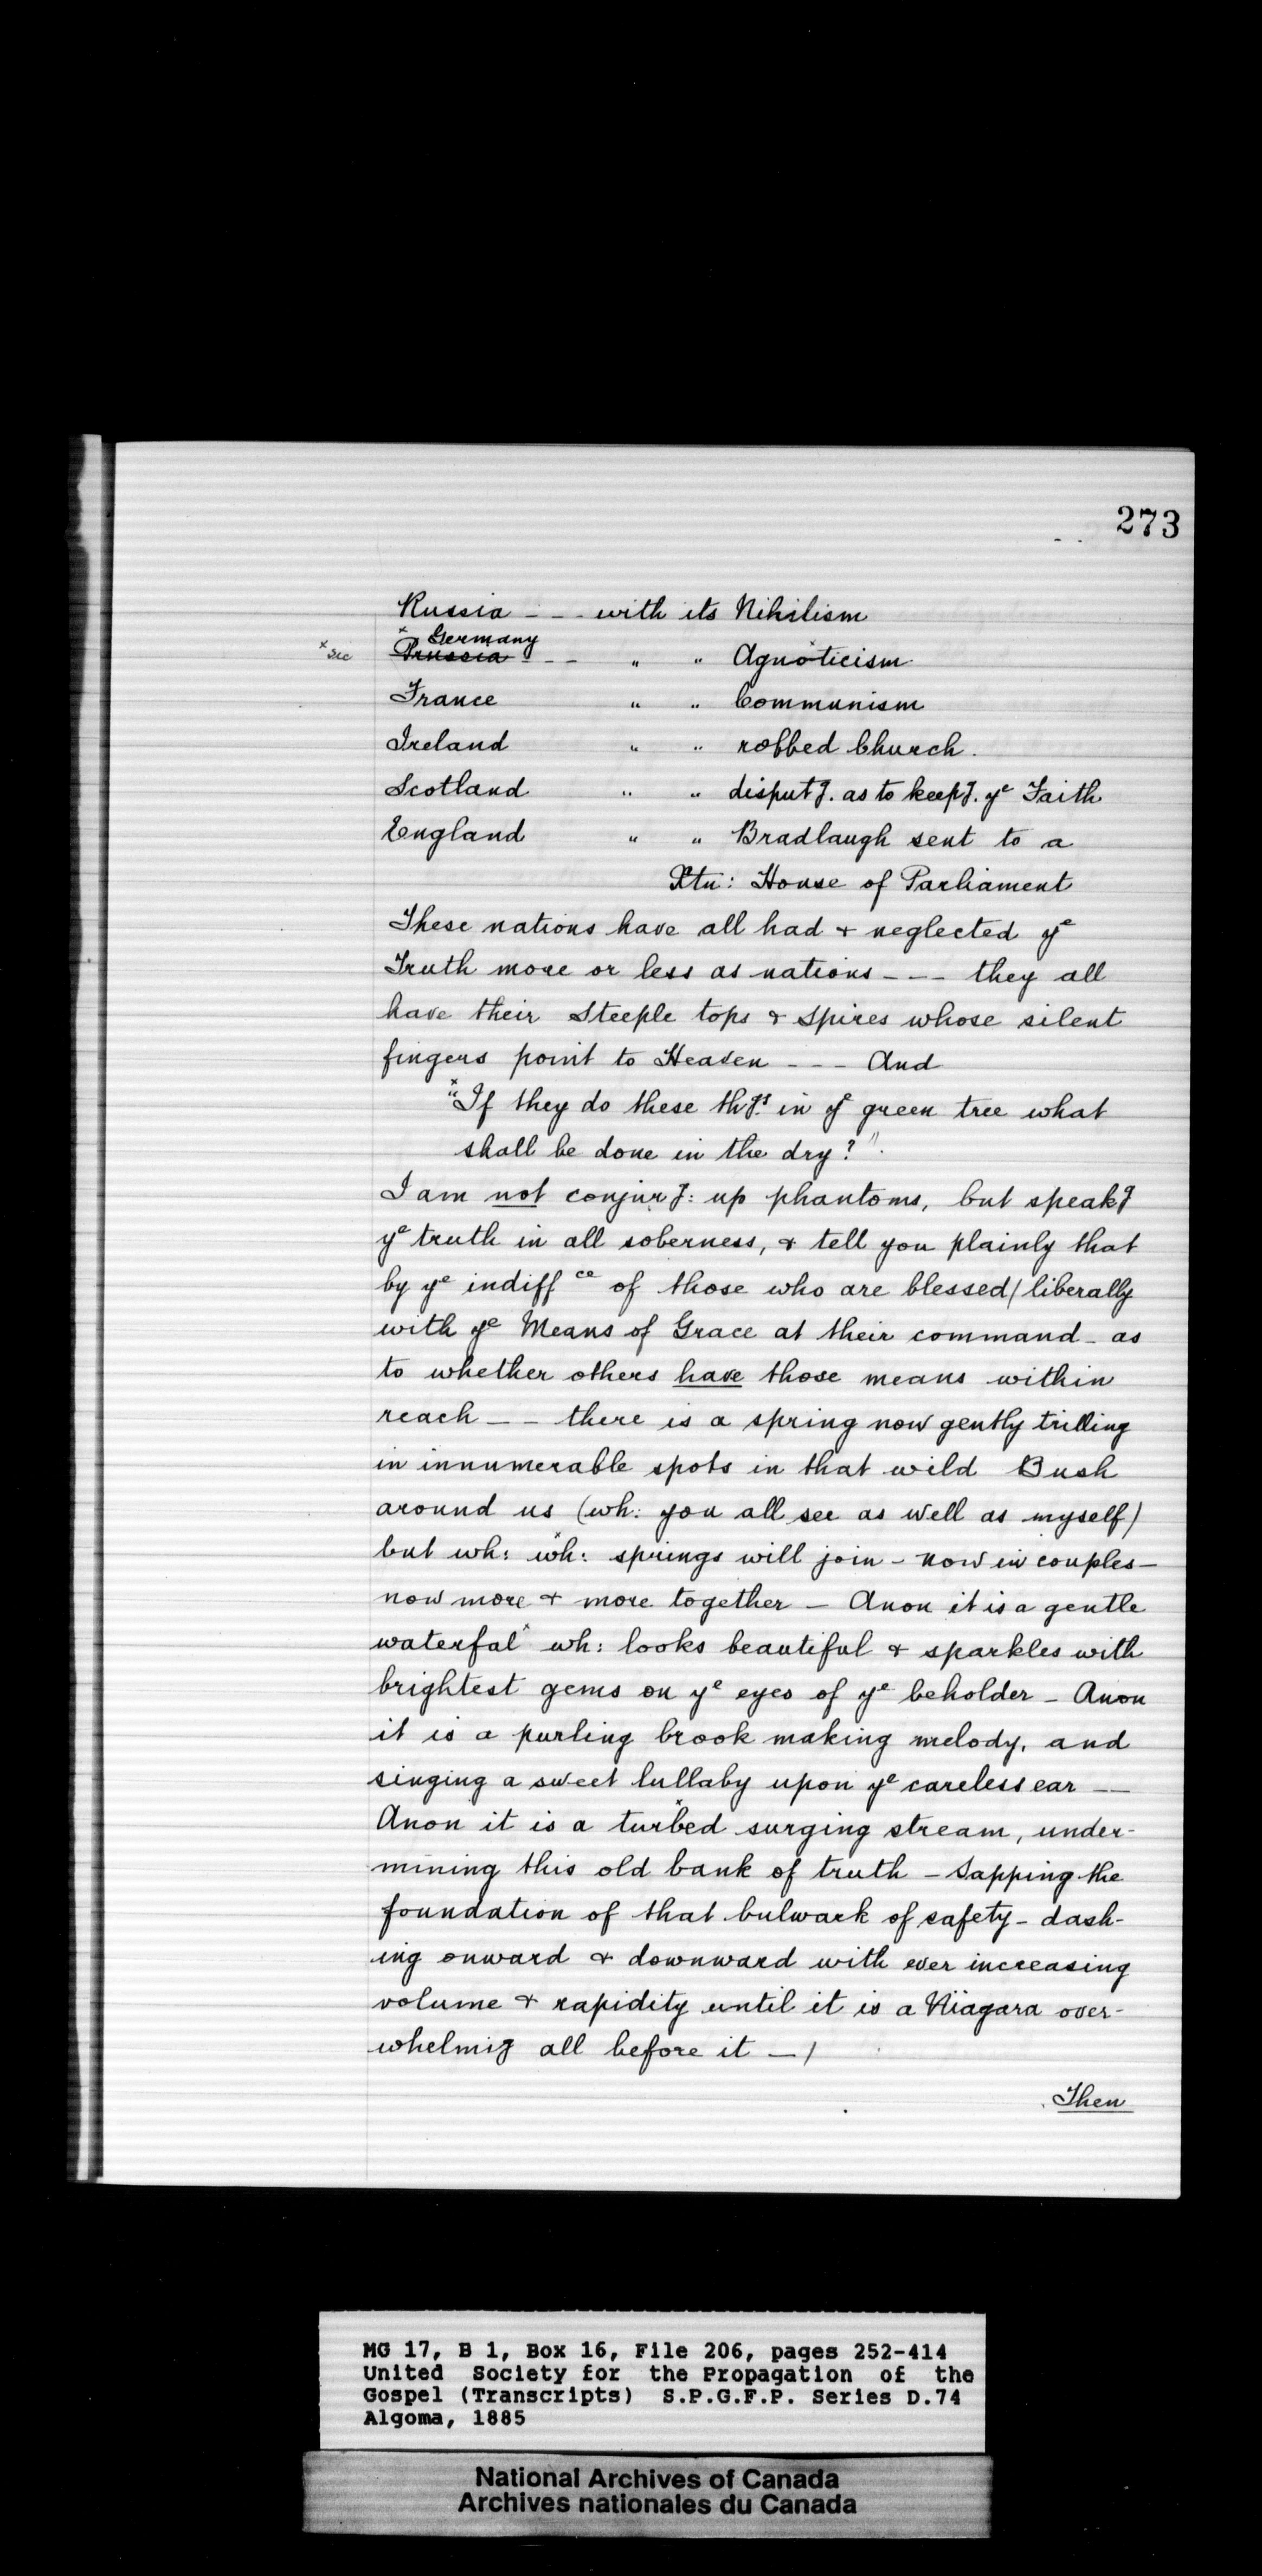 273
Russia - - - with its Nihilism
x Germany
x sic Prussia - - - " " Agnoticism
France " " Communism
Ireland " " robbed Church.
Scotland " " disputg. as to keepg. ye Faith
England " " Bradlaugh sent to a
Xtn: House of Parliament
These nations have all had + neglected ye
Truth more or less as nations - - - they all
have their steeple tops + spires whose silent
fingers point to Heaven - - - And
"If they do these thgs. in ye green tree what
shall be done in the dry?".
I am not conjurg: up phantoms, but speakg
ye truth in all soberness, + tell you plainly that
by ye indiff ce of those who are blessed / liberally
with ye Means of Grace at their command - as
to whether others have those means within
reach - - there is a spring now gently trilling
in innumerable spots in that wild Bush
around us (wh: you all see as well as myself)
but wh: wh: springs will join - now in couples -
now more + more together - Anon it is a gentle
waterfal x wh: looks beautiful + sparkles with
brightest gems on ye eyes of ye beholder - Anon
it is a purling brook making melody, and
singing a sweet lullaby upon ye careless ear —
Anon it is a turbed surging stream, under-
mining this old bank of truth - sapping the
foundation of that bulwark of safety - dash-
ing onward + downward with ever increasing
volume + rapidity until it is a Niagara over-
whelmig all before it - /
Then
MG 17, B 1, Box 16, File 206, pages 252-414
United Society for the Propagation of the
Gospel (Transcripts) S.P.G.F.P. Series D.74
Algoma, 1885
National Archives of Canada
Archives nationales du Canada